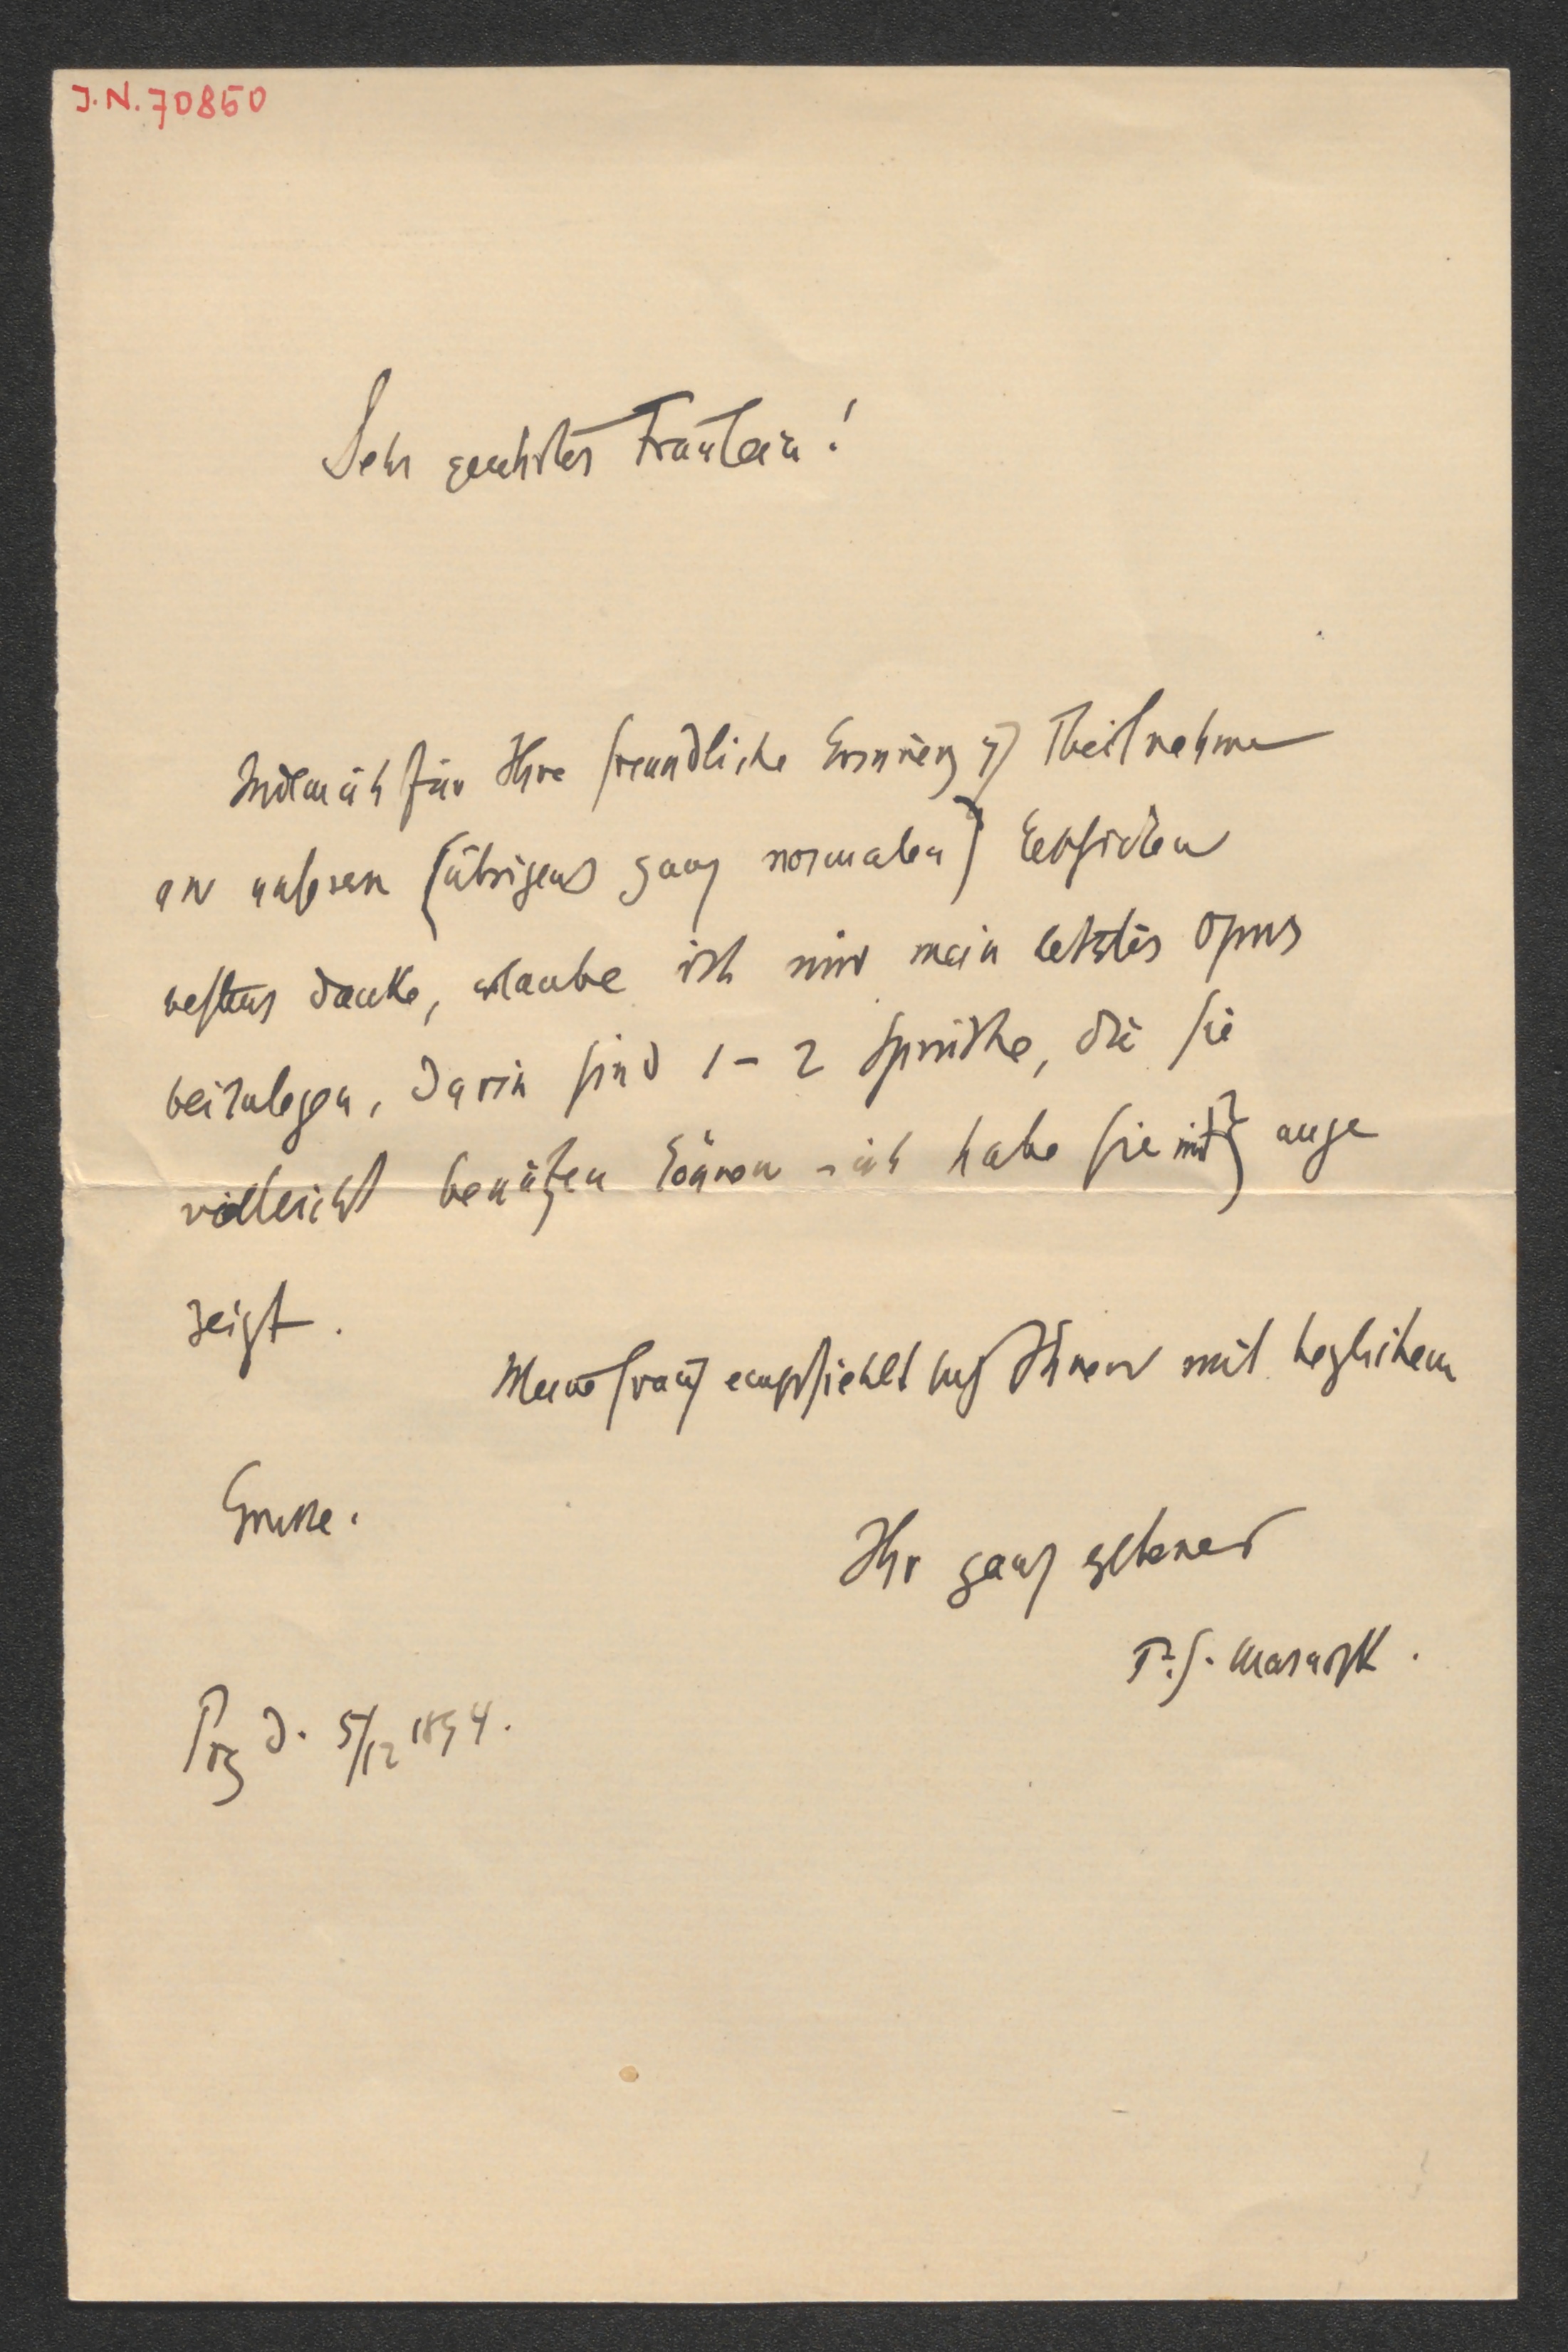 J.N. 70850
Sehr geehrtes Fräulein!
Indem ich für Ihre freundliche Theilnahme
an unseren (übrigens ganz normalen)
bestens danke, erlaube ich mir mein letztes Opus
beizulegen. Darin sind 1-2 Sprüche, die sie
vielleicht benützen können - ich habe sie mit } ange
zeigt.
Meine Frau empfiehlt sich Ihnen mit herzlichem
Grusse.
Ihr ganz ergebener
T. G. Masaryk.
Prg d. 5/12 1894.